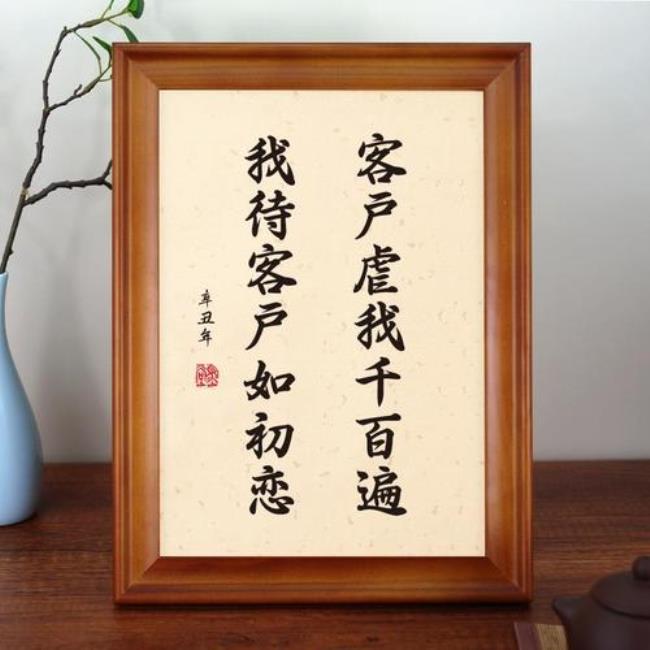 客户虐我千百遍
我待客户如初恋
辛丑年